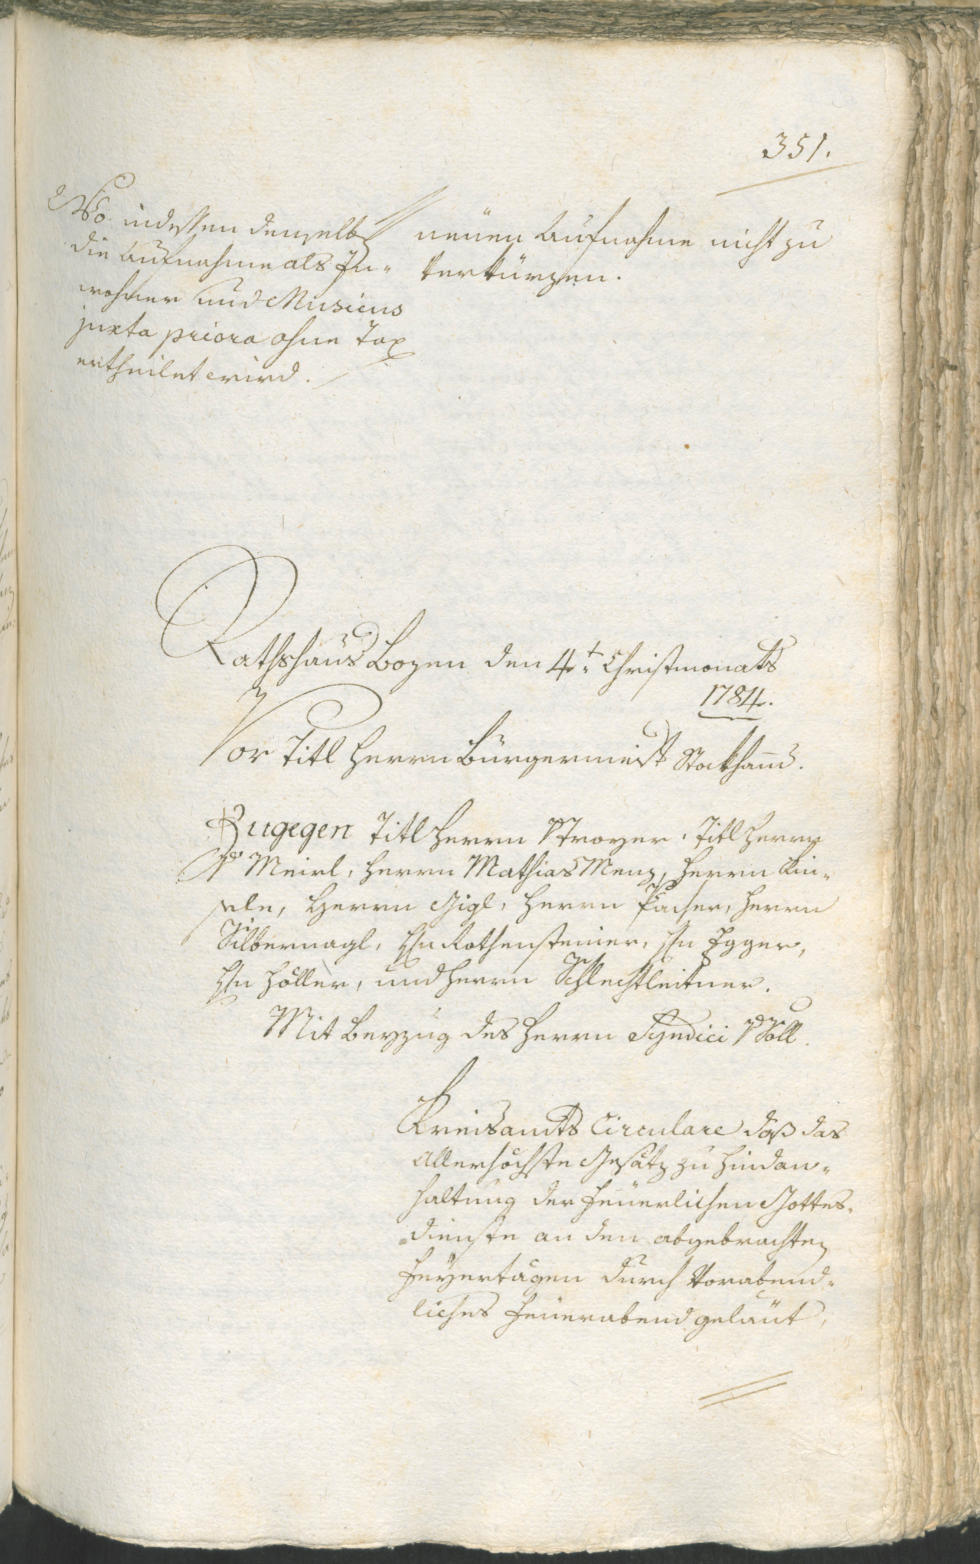 351.
Wo indessen demselb
die Aufnahme als In-
wohner und Musicus
juxta priora ohne Tax
ertheilet wird.
neüen Aufnahme nicht zu
verkürzen.
Rathshaus Bozen den 4t: Christmonats
1784.
Vor Titl Herrn Bürgermeist Stockham̄.
Zugegen Titl Herrn v Troyer. Titl Herrn
Meirl, Herrn Mathias Menz, Herrn Kin-
sele, Herrn Gigl, Herrn Pacher, Herrn
Silbernagl, Hn Rothensteiner, Hn Egger,
Hn Höller, und Herrn Schlechtleitner.
Mit Beyzug des Herrn Syndici v Söll.
Kreisamts Circulare daß das
allerhöchste Gesätz zu hindan-
haltung der feuerlichen Gottes-
dienste an den abgebrachten
Feyertägen durch Vorabend-
liches Feuerabend geläüt,